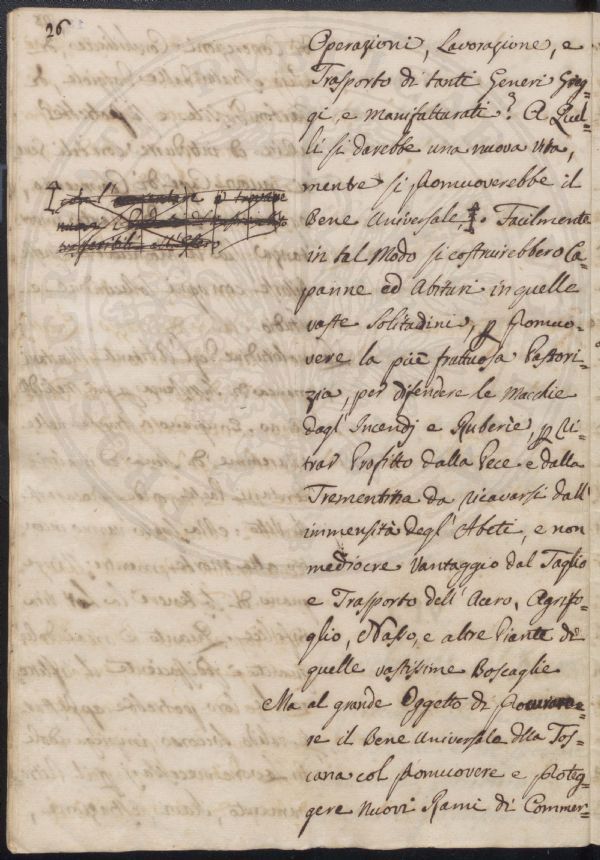 26
Operazioni, Lavorazione, e
Trasporto di tanti Generi Greg=
gi, e manifatturati? A Quel=
li si darebbe una nuova vita,
mentre si promuoverebbe il
Bene Universale. Facilmente
in tal Modo si costruirebbero Ca=
panne ed Abituri in quelle
vaste Solitudini, p Promuo=
vere la più fruttuosa Pastori=
zia, per difendere le Macchie
dagl' Incendj e Ruberie, p Ri=
trar Profitto dalla Pece e dalla
Trementina da ricavarsi dall'
immensità degl' Abeti, e non
mediocre Vantaggio dal Taglio
e Trasporto dell' Acero, Agrifo=
glio, Nasso, e altre Piante di
quelle vastissime Boscaglie
Ma al grande Oggetto di
re il Bene Universale dlla Tos=
cana col promuovere e proteg=
gere nuovi Rami di Commer=
con l' aumentare